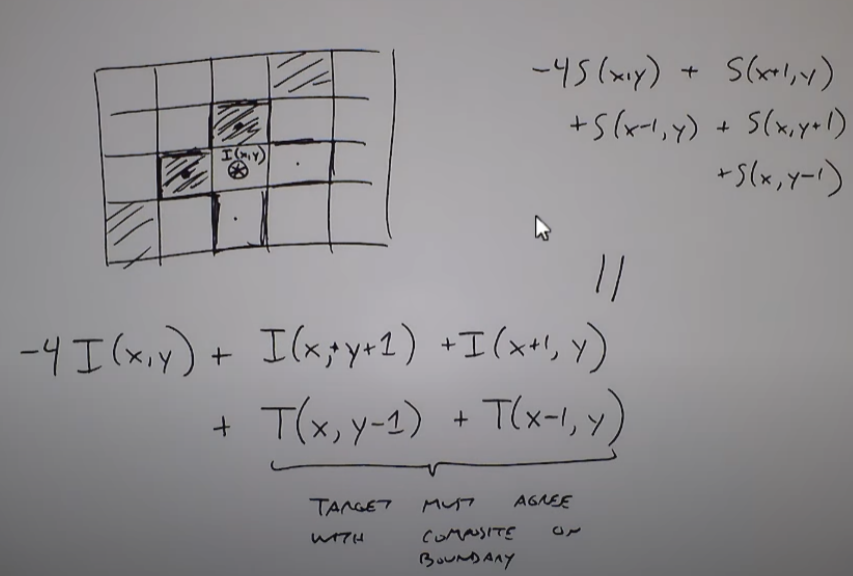 I(x,y)
-4S(x,y) + S(x+1,y)
+S(x-1,y) + S(x,y+1)
+S(x,y-1)
||
-4I(x,y) + I(x,y+1) + I(x+1,y)
+ T(x,y-1) + T(x-1,y)
TARGET MUST AGREE
WITH COMPOSITE ON
BOUNDARY